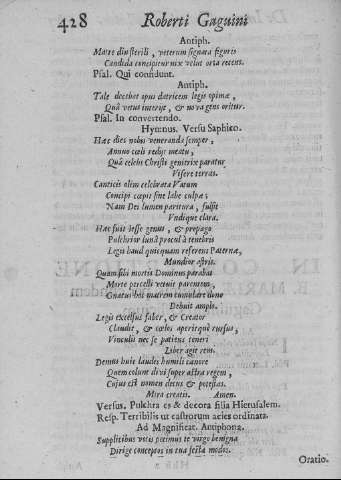 428 Roberti Gaguini
Antiph.
Matre diu sterili, veterum signata figuris
Candida concipitur nix velut orta recens.
Psal. Qui confidunt.
Antiph.
Tale decebat opus datricem legis opimæ,
Quâ vetus interijt, & nova gens oritur.
Psal. In convertendo.
Hymnus. Versu Saphico.
Hæc dies nobis veneranda semper,
Annuo cœli redijt meatu,
Quâ celebs Christi genitrix paratur
Visere terras.
Canticis olim celebrata Vatum
Concipi cœpit sine labe culpæ;
Nam Dei lumen paritura, fulsit
Vndique clara.
Hæc fuit Iesse genus, & propago
Pulchrior lunâ procul à tenebris
Legis haud quicquam referens Paternæ,
Mundior astris.
Quam sibi mortis Dominus parabat
Morte percelli vetuit parentem,
Gnatus hoc matrem cumulare iure
Debuit amplo.
Legis excelsus faber, & Creator
Claudit, & cœlos aperitque rursus,
Vinculis nec se patitur teneri
Liber agit rem.
Demus huic laudes humili canore
Quem colunt divi super astra regem,
Cujus est nomen decus & potestas.
Mira creatis. Amen.
Versus. Pulchra es & decora filia Hierusalem.
Resp. Terribilis ut castrorum acies ordinata.
Ad Magnificat. Antiphona.
Supplicibus votis petimus te virgo benigna
Dirige conceptos in tua festa modos.
Oratio.